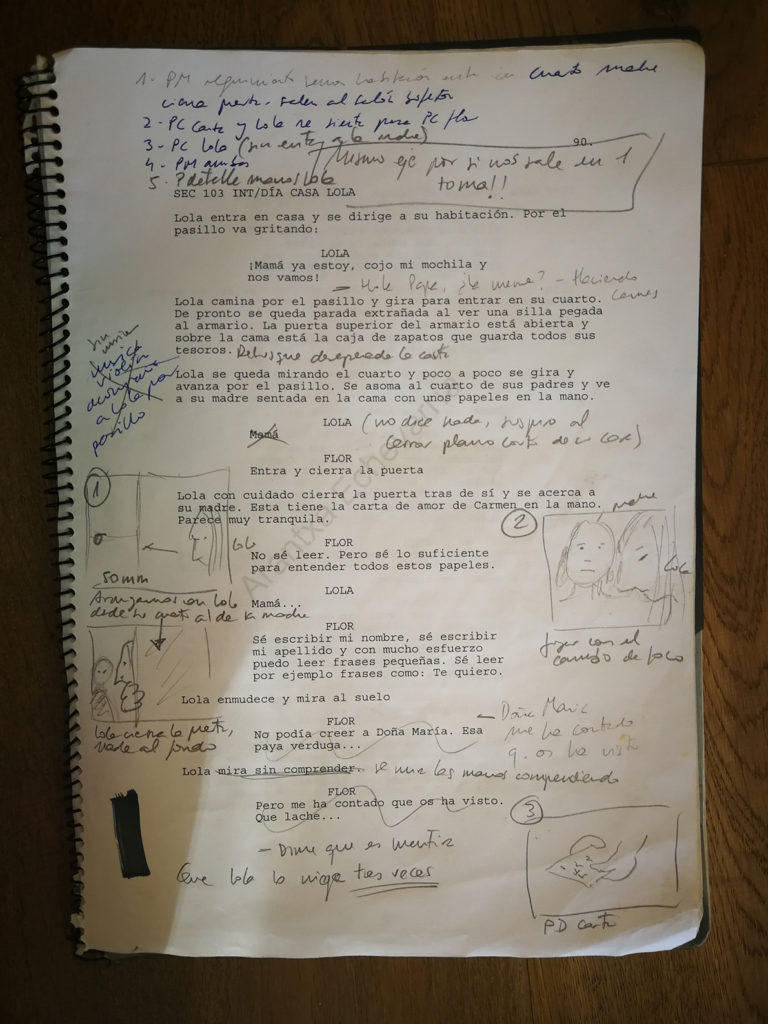 1 - PM seguimiento Lola habitación cuarto madre
cierra puerta. salen al salón
2 - PC Carta y Lola se sienta para PC Flor
3 - PC Lola (sin entrar a la madre)
90.
4 - PM ambas
5 - P detalle manos Lola
Mismo eje por si nos sale en 1
toma!!
SEC 103 INT/DÍA CASA LOLA
Lola entra en casa y se dirige a su habitación. Por el
pasillo va gritando:
LOLA
¡Mamá ya estoy, cojo mi mochila y
nos vamos!
— Hola Papa, ¿la mama? - Haciendo
Lola camina por el pasillo y gira para entrar en su cuarto.
De pronto se queda parada extrañada al ver una silla pegada
al armario. La puerta superior del armario está abierta y
sobre la cama está la caja de zapatos que guarda todos sus
tesoros. Rebusque desesperada la carta
Sin
música
a Lola por
pasillo
Lola se queda mirando el cuarto y poco a poco se gira y
avanza por el pasillo. Se asoma al cuarto de sus padres y ve
a su madre sentada en la cama con unos papeles en la mano.
LOLA (no dice nada, suspiro al
Mamá
cerrar plano carta de su cara)
FLOR
Entra y cierra la puerta
1
Lola con cuidado cierra la puerta tras de sí y se acerca a
su madre. Esta tiene la carta de amor de Carmen en la mano.
Parece muy tranquila.
2
madre
Lola
Lola
FLOR
No sé leer. Pero sé lo suficiente
para entender todos estos papeles.
50mm
LOLA
Mamá...
Arantxa Echevarría
FLOR
Sé escribir mi nombre, sé escribir
mi apellido y con mucho esfuerzo
puedo leer frases pequeñas. Sé leer
por ejemplo frases como: Te quiero.
jugar con el
cambio de foco
Lola enmudece y mira al suelo
Lola cierra la puerta,
madre al fondo
FLOR
No podía creer a Doña María. Esa
paya verduga...
— Doña María
me ha contado
q. os ha visto
Lola mira sin comprender. se mira las manos comprendiendo
FLOR
Pero me ha contado que os ha visto.
Que laché...
3
— Dime que es mentira
Que Lola lo niegue tres veces
PD carta